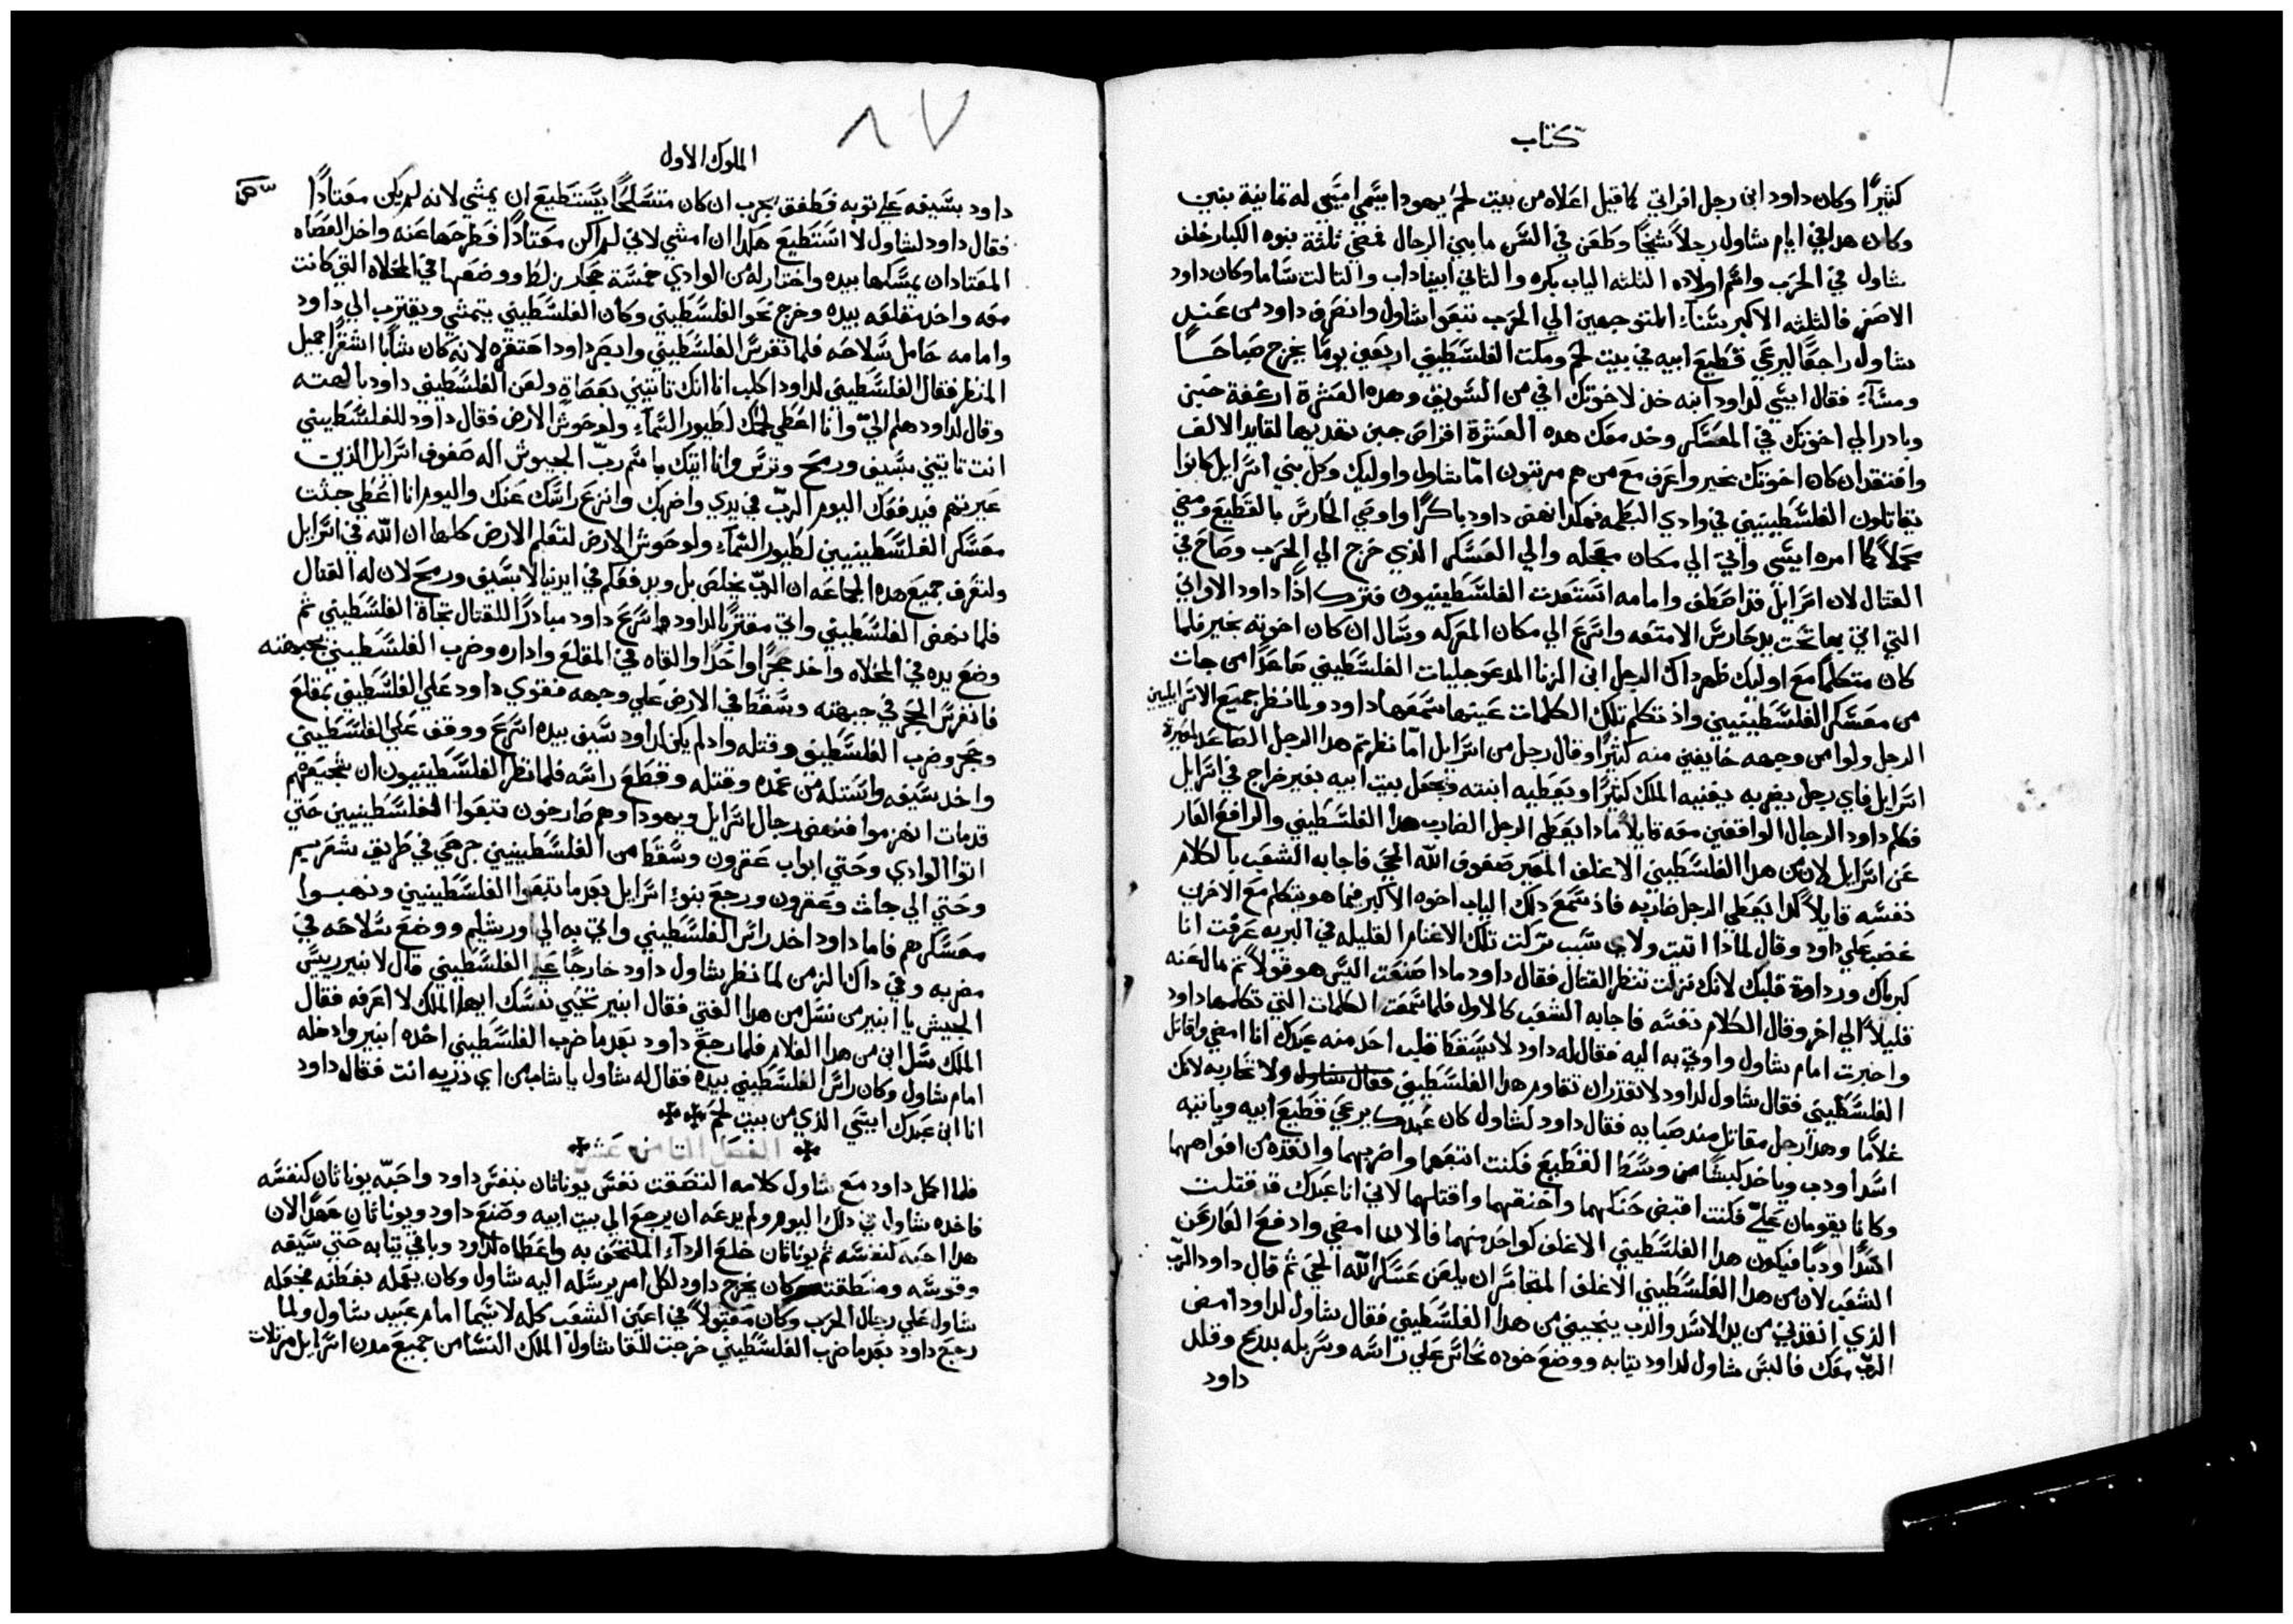 كتاب
كثيرًا وكان داود ابن رجل افراتي كما قيل اعلاه من بيت لحم يهودا يسمي ايسي له تمانية بنين
وكان هدا في ايام شاول رجلاً شيخًا وطعن في السن ما بين الرجال فمضي ثلثة بنوه الكبار خلف
شاول في الحرب واسم اولاده الثلثه الياب بكره والثاني ابيناداب والتالت ساما وكان داود
الاصغر فالثلثه الاكبر سناً المتوجهين الي الحرب تبعوا شاول وانصرف داود من عند
شاول راجعًا ليرعي قطيع ابيه في بيت لحم ومكت الفلسطيني اربعين يومًا يخرج صباحًا
ومسآء فقال ايسي لداود ابنه خذ لاخوتك افي من السويق وهده العشرة ارغفة خبز
وبادر الي اخوتك في المعسكر وخد معك هده العشرة اقراص جبن تقدمها لقايد الالف
وافتقد ان كان اخوتك بخير واعرف مع من هم مرتبون امّا شاول واوليك وكل بني اسرايل كانوا
يقاتلون الفلسطينيين في وادي البطمه فهكدا نهض داود باكرًا واوصي الحارس بالقطيع ومضي
محملاً كما امره ايسي واتي الي مكان مجعله والي العسكر الذي خرج الي الحرب وصاح في
القتال لان اسرايل قد اصطف وامامه استعدت الفلسطينيون فترك اذًا داود الاواني
التي اتي بها تحت يد حارس الامتعه واسرع الي مكان المعركه وسال ان كان اخوته بخير فلما
كان متكلمًا مع اوليك ظهر داك الرجل ابن الزنا المدعو جليات الفلسطيني صاعدًا من جات
من معسكر الفلسطينيين واذ تكلم تلك الكلمات عينها سمعها داود ولما نظر جميع الاسرايليين
الرجل ولوا من وجهه خايفين منه كثيرًا وقال رجل من اسرايل امّا نظرتم هدا الرجل الصاعد ليعيرة
اسرايل فاي رجل يضربه يغنيه الملك كثيرًا ويعطيه ابنته ويجعل بيت ابيه بغير خراج في اسرايل
فكلم داود الرجال الواقفين معه قايلاً مادا يعطي الرجل الضارب هدا الفلسطيني والرافع العار
عن اسرايل لان من هدا الفلسطيني الاغلف المعير صفوف الله الحي فاجابه الشعب بالكلام
نفسه قايلاً كدا يعطي الرجل ضاربه فاذ سمع دلك الياب اخوه الاكبر فيما هو يتكلم مع الاخرين
غضب علي داود وقال لمادا اتيت ولاي سبب تركت تلك الاغنام القليله في البريه عرفت انا
كبرياك ورداوة قلبك لانك نزلت تنظر القتال فقال داود مادا صنعت اليس هو قولاً ثم مال عنه
قليلاً الي اخر وقال الكلام نفسه فاجابه الشعب كالاول فلما سمعت الكلمات التي تكلمها داود
واخبرت امام شاول واوتي به اليه فقال له داود لا يسقط قلب احد منه عبدك انا امضي واقاتل
الفلسطيني فقال شاول لداود لا تقدر ان تقاوم هدا الفلسطيني فقال شاول ولا تحاربه لانك
غلامًا وهدا رجل مقاتل مند صبايه فقال داود لشاول كان عبدك يرعي قطيع ابيه وياتيه
اسد او دب وياخد كبشًا من وسط القطيع فكنت اتبعها واضربهما وانقده من افواههما
وكانا يقومان عليّ فكنت اقبض حنكهما واخنقهما واقتلهما لاني انا عبدك قد قتلت
اسدًا ودبًا فيكون هدا الفلسطيني الاغلف كواحد منهما فالان امضي وادفع العار عن
الشعب لان من هدا الفلسطيني الاغلف المتجاسر ان يلعن عسكر الله الحي ثم قال داود الرب
الذي انقدني من يد الاسد والدب ينجيني من هدا الفلسطيني فقال شاول لداود امض
الرب معك فالبس شاول لداود تيابه ووضع خوده نحاس علي راسه وسربله بدرع وقلد
داود
٨٧
الملوك الاول
داود بسيفه علي توبه فطفق يجرب ان كان متسلحًا يستطيع ان يمشي لانه لم يكن معتادًا
فقال داود لشاول لا استطيع هكدا ان امشي لاني لم اكن معتادًا فطرحها عنه واخد العصاه
المعتاد ان يمسكها بيده واختار له من الوادي خمسة حجار زلط ووضعها في المخلاه التي كانت
معه واخد مقلعه بيده وخرج نحو الفلسطيني وكان الفلسطيني يتمشي ويقترب الي داود
وامامه حامل سلاحه فلما تفرس الفلسطيني وابصر داود احتقره لانه كان شابًا اشقرًا جميل
المنظر فقال الفلسطيني لداود اكلب انا انك تاتيني بعصاة ولعن الفلسطيني داود بالهته
وقال لداود هلم اليّ وانا اعطي لحمك لطيور السمآء ولوحوش الارض فقال داود للفلسطيني
انت تاتيني بسيف ورمح وترس وانا اتيك باسم ربّ الجيوش اله صفوف اسرايل الذين
عيرتهم فيدفعك اليوم الربّ في يدي واضربك وانزع راسك عنك واليوم انا اعطي جثث
معسكر الفلسطينيين لطيور السمآء ولوحوش الارض لتعلم الارض كلها ان الله في اسرايل
ولتعرف جميع هده الجماعه ان الربّ يخلص بل ويدفعكم في ايدينا لا بسيف ورمح لان له القتال
فلما نهض الفلسطيني واتي مقتربًا لداود اسرع داود مبادرًا للقتال تجاة الفلسطيني ثم
وضع يده في المخلاه واخد حجرًا واحدًا والقاه في المقلع واداره وضرب الفلسطيني بجبهته
فانغرس الحجر في جبهته وسقط في الارض علي وجهه فقوي داود علي الفلسطيني بمقلع
وحجر وضرب الفلسطيني وقتله واد لم يكن لداود سيف بيده اسرع ووقف علي الفلسطيني
واخد سيفه واستله من غمده وقتله وقطع راسه فلما نظر الفلسطينيون ان شجيعهم
قد مات انهزموا فنهض رجال اسرايل ويهودا وهم صارخون تبعوا الفلسطينيين حتي
اتوا الوادي وحتي ابواب عقرون وسقط من الفلسطينيين جرحي في طريق شعريم
وحتي الي جاث وعقرون ورجع بنو اسرايل بعد ما تبعوا الفلسطينيين ونهبوا
معسكرهم فاما داود اخد راس الفلسطيني واتي به الي اورشليم ووضع سلاحه في
مضربه وفي داك الزمن لما نظر شاول داود خارجًا علي الفلسطيني قال لابنير رييس
الجيش يا ابنير من نسل من هدا الفتي فقال ابنير تحيي نفسك ايها الملك لا اعرفه فقال
الملك سل ابن من هدا الغلام فلما رجع داود بعد ما ضرب الفلسطيني اخده ابنير وادخله
امام شاول وكان راس الفلسطيني بيده فقال له شاول يا شاب من اي ذريه انت فقال داود
انا ابن عبدك ايسي الذي من بيت لحم
الفصل الثامن عشر
فلما اكمل داود مع شاول كلامه التصقت نفس يوناثان بنفس داود واحبّه يوناثان كنفسه
فاخده شاول في دلك اليوم ولم يدعه ان يرجع الي بيت ابيه وصنع داود ويوناثان عهدًا لان
هدا احبه كنفسه ثم يوناثان خلع الردآء الملتحف به واعطاه لداود وباقي تيابه حتي سيفه
وقوسه ومنطقته وكان يخرج داود لكل امر يرسله اليه شاول وكان يعمله بفطنه فجعله
شاول علي رجال الحرب وكان مقبولاً في اعين الشعب كله لا سيما امام عبيد شاول ولما
رجع داود بعد ما ضرب الفلسطيني خرجت للقا شاول الملك النسا من جميع مدن اسرايل مرتلات